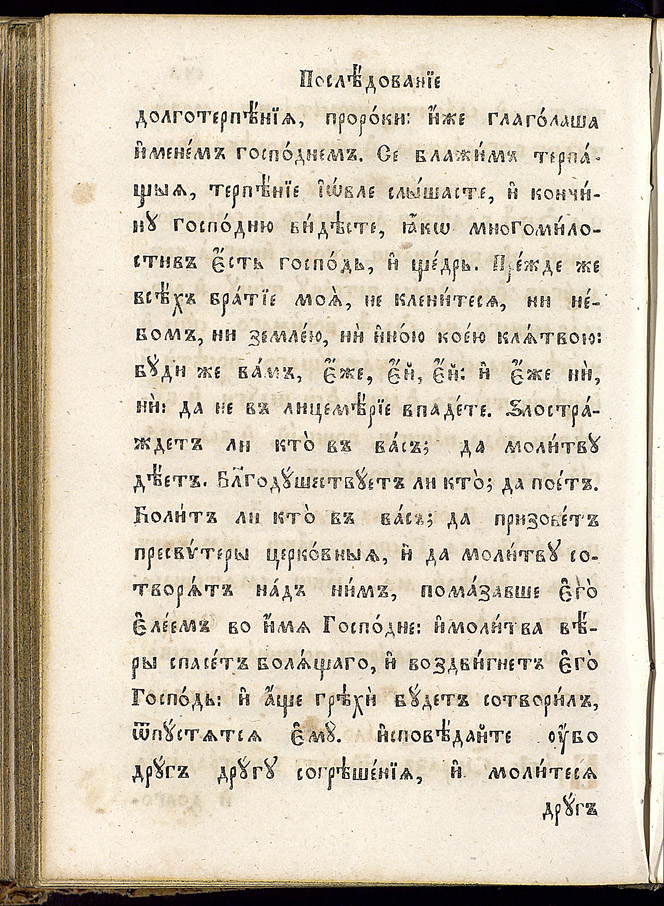 Послѣ́дованїе
долготерпѣ́нїѧ, проро́ки: и҆̀же глаго́лаша
и҆мене́мъ госпо́днемъ. Се блажи́мъ терпѧ́-
щыѧ, терпѣ́нїе і҆ѡ́вле слы́шасте, и҆ кончи́-
нꙋ госпо́дню ви́дѣсте, ꙗ҆́кѡ многоми́ло-
стивъ є҆́сть госпо́дь, и҆ ще́дръ. Пре́жде же
всѣ́хъ бра́тїе моѧ̀, не клени́тесѧ, ни не́-
бомъ, ни земле́ю, ни̇̀ и҆но́ю кое́ю клѧ́твою:
бꙋ́ди же ва́мъ, є҆́же, є҆́й, є҆́й: и҆ є҆́же нѝ,
нѝ: да не въ лицемѣ́рїе впаде́те. Ѕлостра́-
ждетъ ли кто̀ въ ва́съ; да моли́твꙋ
дѣ́етъ. Бл҃годꙋ́шествꙋетъ ли кто̀; да пое́тъ.
Боли́тъ ли кто̀ въ ва́съ; да призове́тъ
пресвѵ́теры церко́вныѧ, и҆ да моли́твꙋ со-
творѧ́тъ на́дъ ни́мъ, пома́завше є҆го̀
є҆ле́емъ во и҆́мѧ Госпо́дне: и҆моли́тва вѣ́-
ры спасе́тъ болѧ́щаго, и҆ воздви́гнетъ є҆го̀
Госпо́дь: и҆ а҆́ще грѣхѝ бꙋ́детъ сотвори́лъ,
ѿпꙋ́стѧтсѧ є҆мꙋ̀. и҆сповѣ́дайте ᲂу҆́бо
дрꙋ́гъ дрꙋ́гꙋ согрѣше́нїѧ, и҆ моли́тесѧ
дрꙋ́гъ